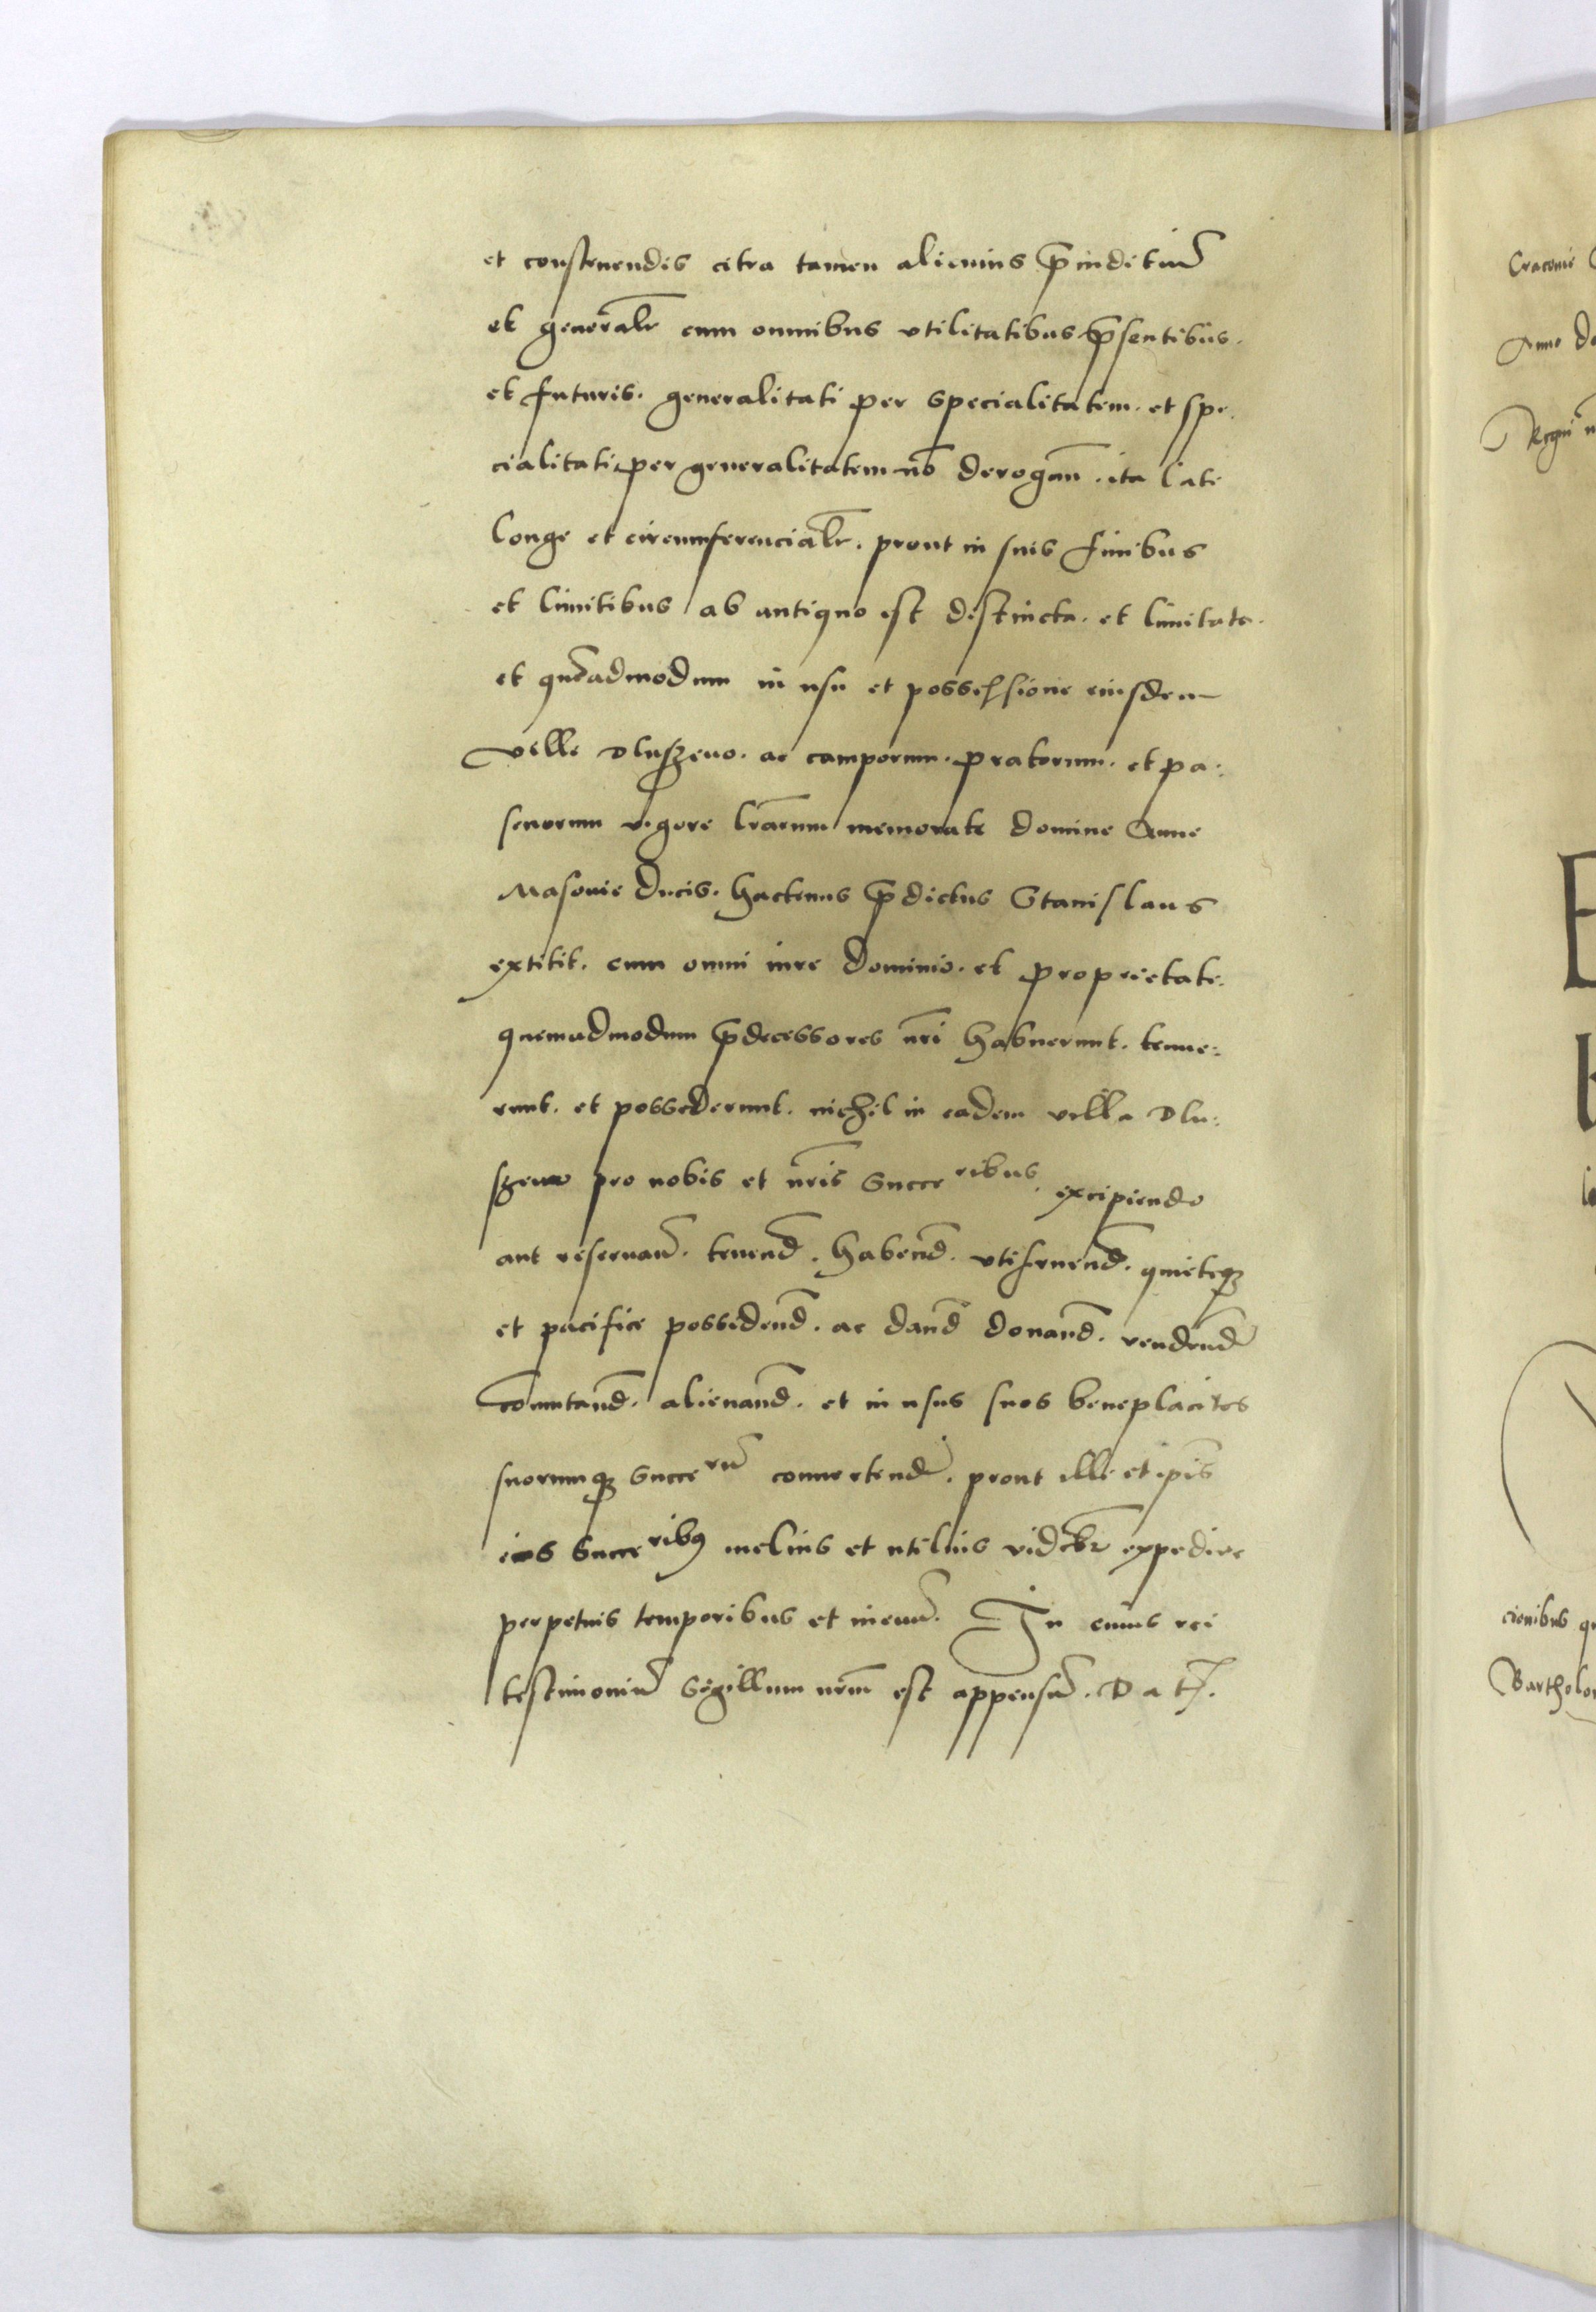 et construendis citra tamen alicuius p̄iuditiu̅
et generalr̄ cum omnibus vtilitatibus p̄sentibus.
et futuris. generalitati per specialitatem. et spe.
cialitati per generalitatem nō derogan̄. ita late
longe et circumferencialr̄. prout in suis finibus
et limitibus ab antiquo est distincta. et limitata.
et que̅admodum in usu et possessione eiusdem
ville Dluszewo. ac camporum. pratorum. et pa:
scuorum vigore lr̄arum memorate domine Anne
Masouie ducis. hactenus p̄dictus Stanislaus
extitit. cum omni iure dominio. et proprietate.
quemadmodum p̄decessores nr̄i habuerunt. tenue:
runt. et possederunt. nichil in eadem villa Dlu:
szewo pro nobis et nr̄is Succeribus. excipiendo
aut reseruan̄. tenend̄. habend̄. vtifruend̄. quieteq3
et pacifice possidend̄. ac dand̄ donand̄. vendend̄
Comutand̄. alienand̄. et in usus suos beneplacitos
suorumq3 Succeru̅ conuertend̄. prout illi et ip̄is
eius Succerib9 melius et utilius videbr̄ expedire
perpetuis temporibus et in euu̅. In cuius rei
testimoniu̅ Sigillum nr̄m est appensu̅. Dat̄.
Cracouie
Anno do
Regni n
E
cionibus qu
Bartholom